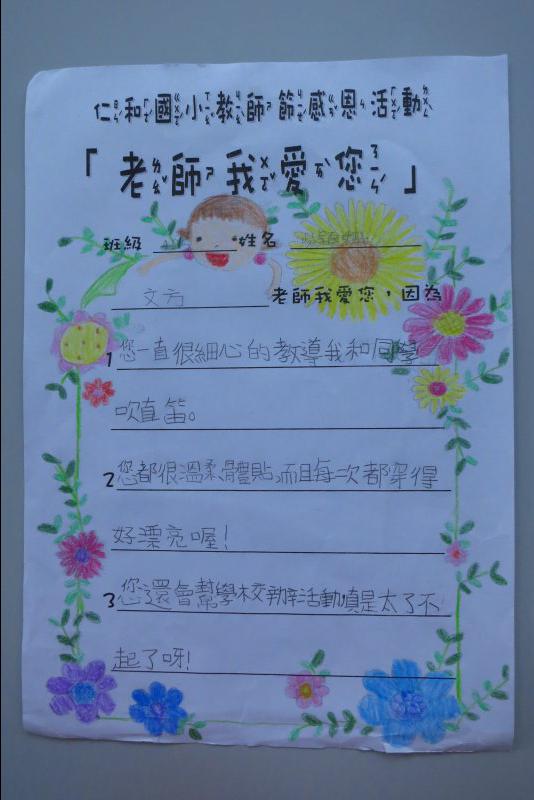 仁和國小教師節感恩活動
「老師我愛您」
班級 姓名
文方 老師我愛您，因為
1 您一直很細心的教導我和同學
吹直笛。
2 您都很溫柔、體貼，而且每次都穿得
好漂亮喔！
3 您還會幫學校辦活動，真是太了不
起了呀！